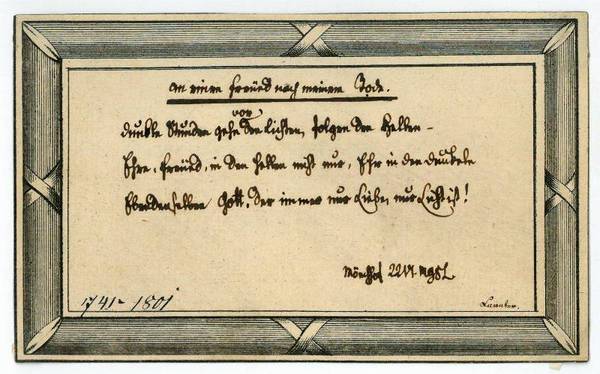 An einen Freünd nach meinem Tode.
vor
Dunkle Stunden gehn den Lichten, folgen den Hellen –
Ehre, Freünd, in den Hellen nicht nur, Ehr in den dunkeln
Ebendenselben Gott, der immer nur Liebe, nur Licht ist!
22 VI. L.
1741- 1801
Lavater.